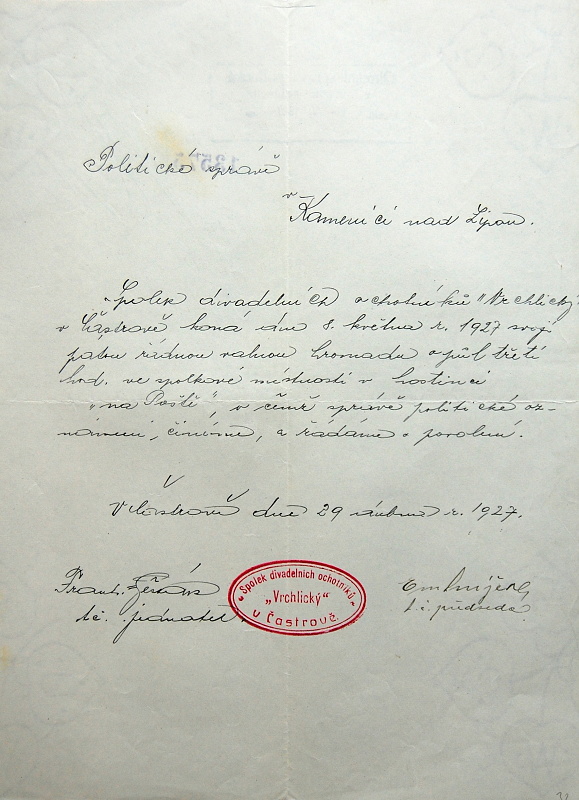 Politické správě
v Kamenici nad Lipou.
Spolek divadelních ochotníků "Vrchlický"
v Částrově koná dne 8. května r. 1927 svoji
pátou řádnou valnou hromadu o půl třetí
hod. ve spolkové místnosti v hostinci
"na Poště", o čemž správě politické oz-
námení, činíme, a žádáme o povolení.
V Častrově dne 29 dubna r. 1927.
Frant.
t.č. jednatel.
Spolek divadelních ochotníků
"Vrchlický"
v Častrově.
t.č. předseda